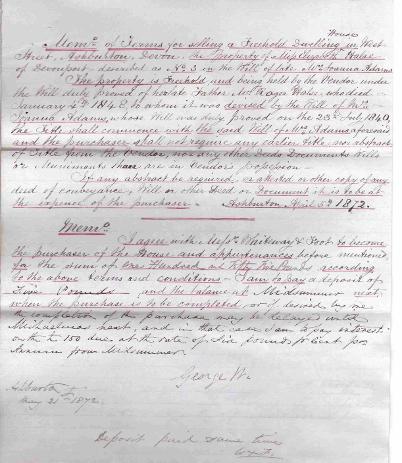 House
Memo. of Terms for selling a Freehold Dwelling in West
Street, Ashburton, Devon, the Property of Miss Elizabeth
of Devonport, described as No 3 in the Will of late Mrs Joanna Adams
The property is Freehold and being held by the Vendor under
the Will duly proved of her late Father Mr who died
January 4th 1848, to whom it was devised by the Will of Mrs
Joanna Adams, whose Will was duly proved on the 23rd July 1840,
the Title shall commence with the said Will of Mrs Adams aforesaid
and the purchaser shall not require any earlier title, nor abstract
of Title from the Vendor, nor any other Deeds Documents Wills
or Muniments than are in Vendors possession.
If any abstract be required, or attested or other copy of any
deed of conveyance, Will or other Deed or Document it is to be at
the expense of the purchaser. Ashburton April 5th 1872.
Memo.
I agree with Messrs Whiteway & Foot to become
the purchaser of the House and appurtenances before mentioned
for the sum of One Hundred and Fifty Pounds according
to the above terms and conditions. I am to pay a deposit of
Pounds and the balance at Midsummer next,
when the purchase is to be completed, or if desired by me
the completion of the purchase may be delayed until
Michaelmas next, and in that case I am to pay interest
on the 150 due at the rate of Six pounds pr Cent per
Annum from Midsummer.
George W.
Ashburton
May 21st 1872.
Deposit paid same time